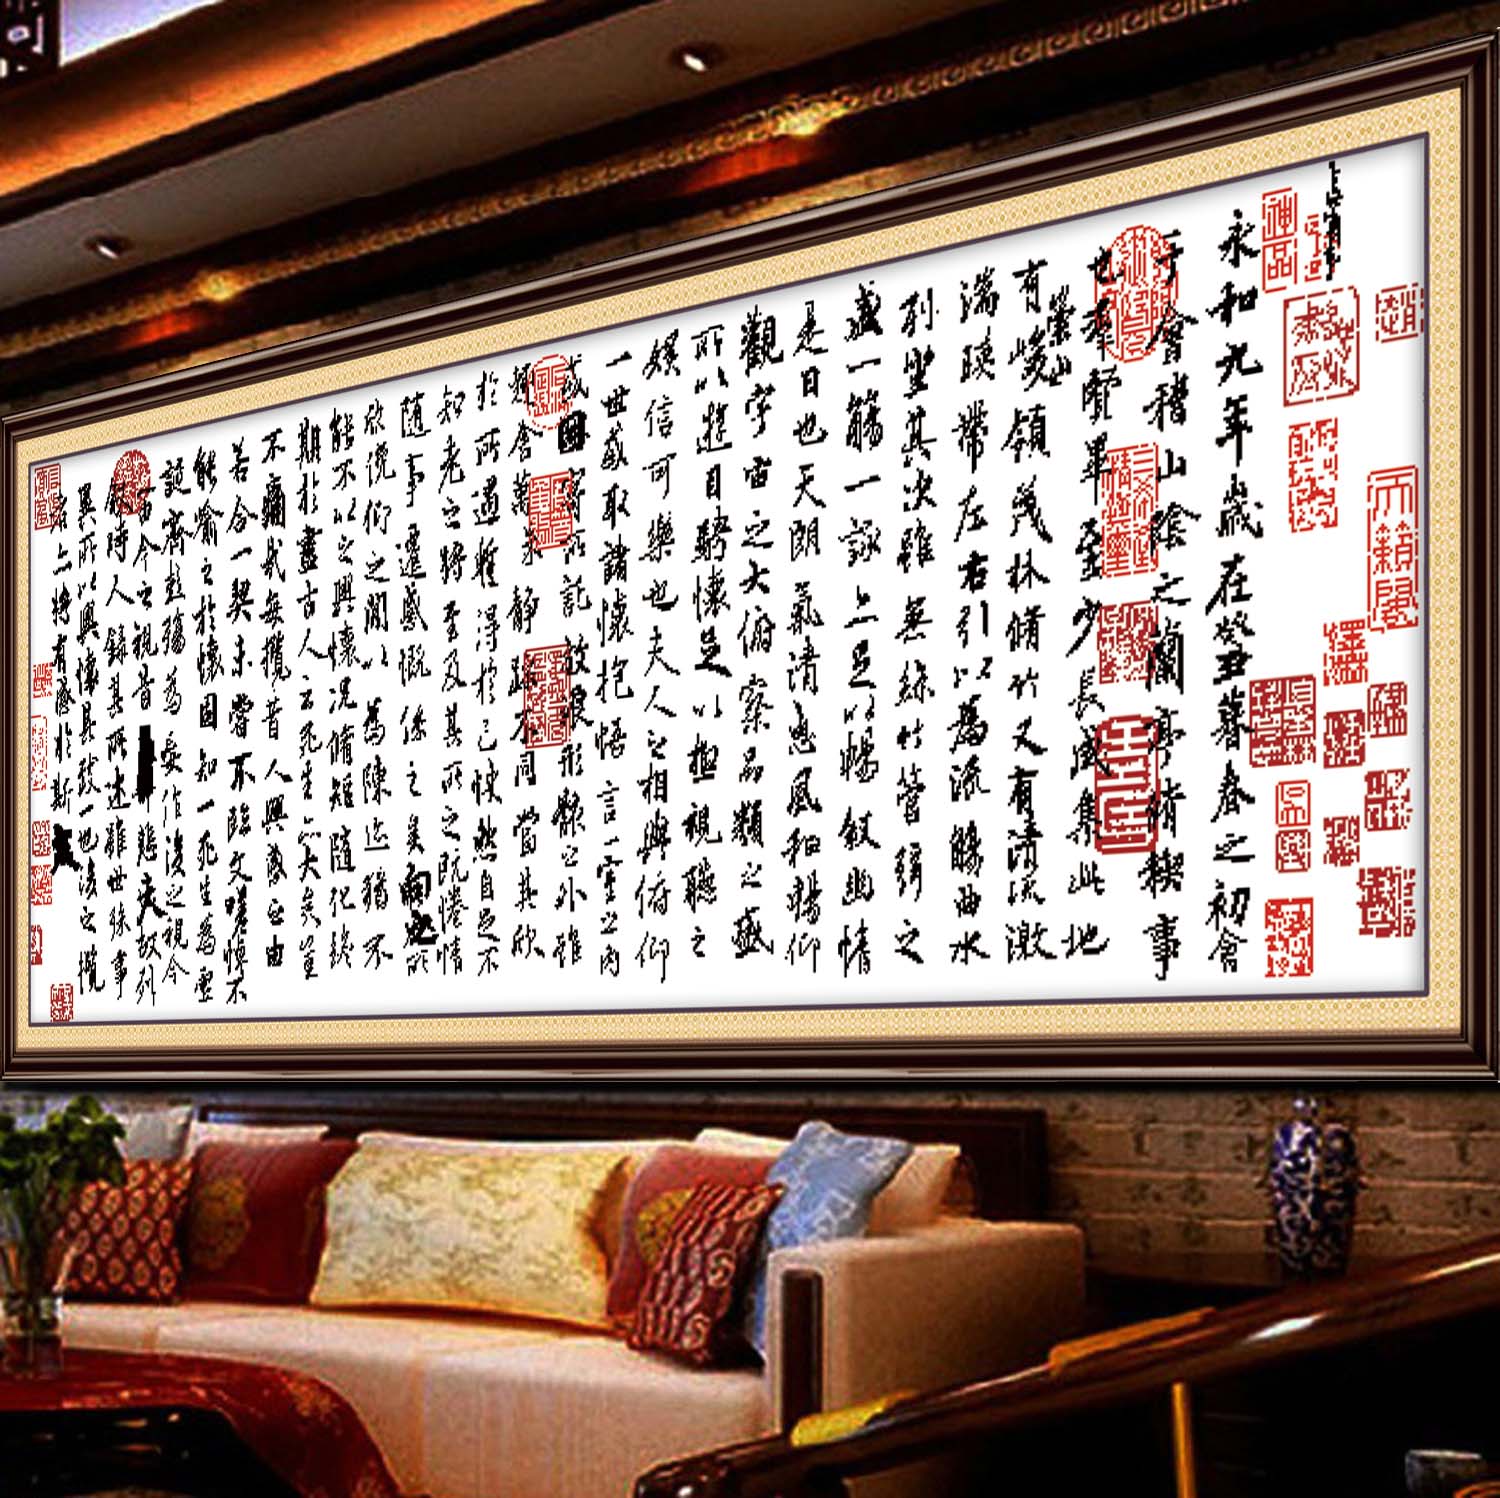 神品
永和九年歲在癸丑暮春之初會
于會稽山陰之蘭亭脩稧事
也羣賢畢至少長咸集此地
崇山
有峻領茂林脩竹又有清流激
湍暎帶左右引以為流觴曲水
列坐其次雖無絲竹管弦之
盛一觴一詠亦足以暢敘幽情
是日也天朗氣清惠風和暢仰
觀宇宙之大俯察品類之盛
所以遊目騁懷足以極視聽之
娛信可樂也夫人之相與俯仰
一世或取諸懷抱悟言一室之內
或因寄所託放浪形骸之外雖
趣舍萬殊靜躁不同當其欣
於所遇蹔得於己快然自足不
知老之將至及其所之既惓情
隨事遷感慨係之矣向之所
欣俛仰之閒以為陳迹猶不
能不以之興懷況脩短隨化終
期於盡古人云死生亦大矣豈
不痛哉每攬昔人興感之由
若合一契未嘗不臨文嗟悼不
能喻之於懷固知一死生為虛
誕齊彭殤為妄作後之視今
由今之視昔悲夫故列
敘時人錄其所述雖世殊事
異所以興懷其致一也後之攬
者亦將有感於斯文